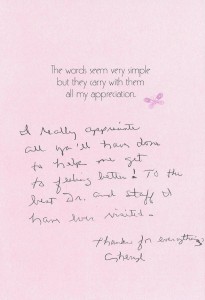 The words seem very simple
but they carry with them
all my appreciation.
I really appreciate
all ya'll have done
to help me get
to feeling better! To the
best Dr. and staff I
have ever visited.
Thanks for everything,
Cheryl